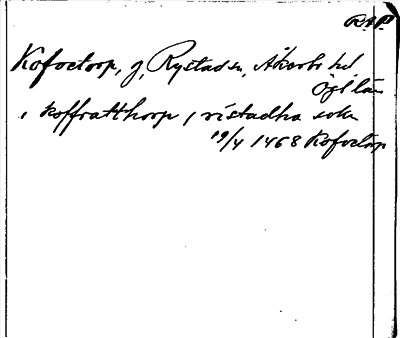 RAP
Kofoetorp, g, Rystad sn, Åkerbo hd
Ögl län
i koffratthorp / ristadha sokn
19/4 1468 Kofoetorp